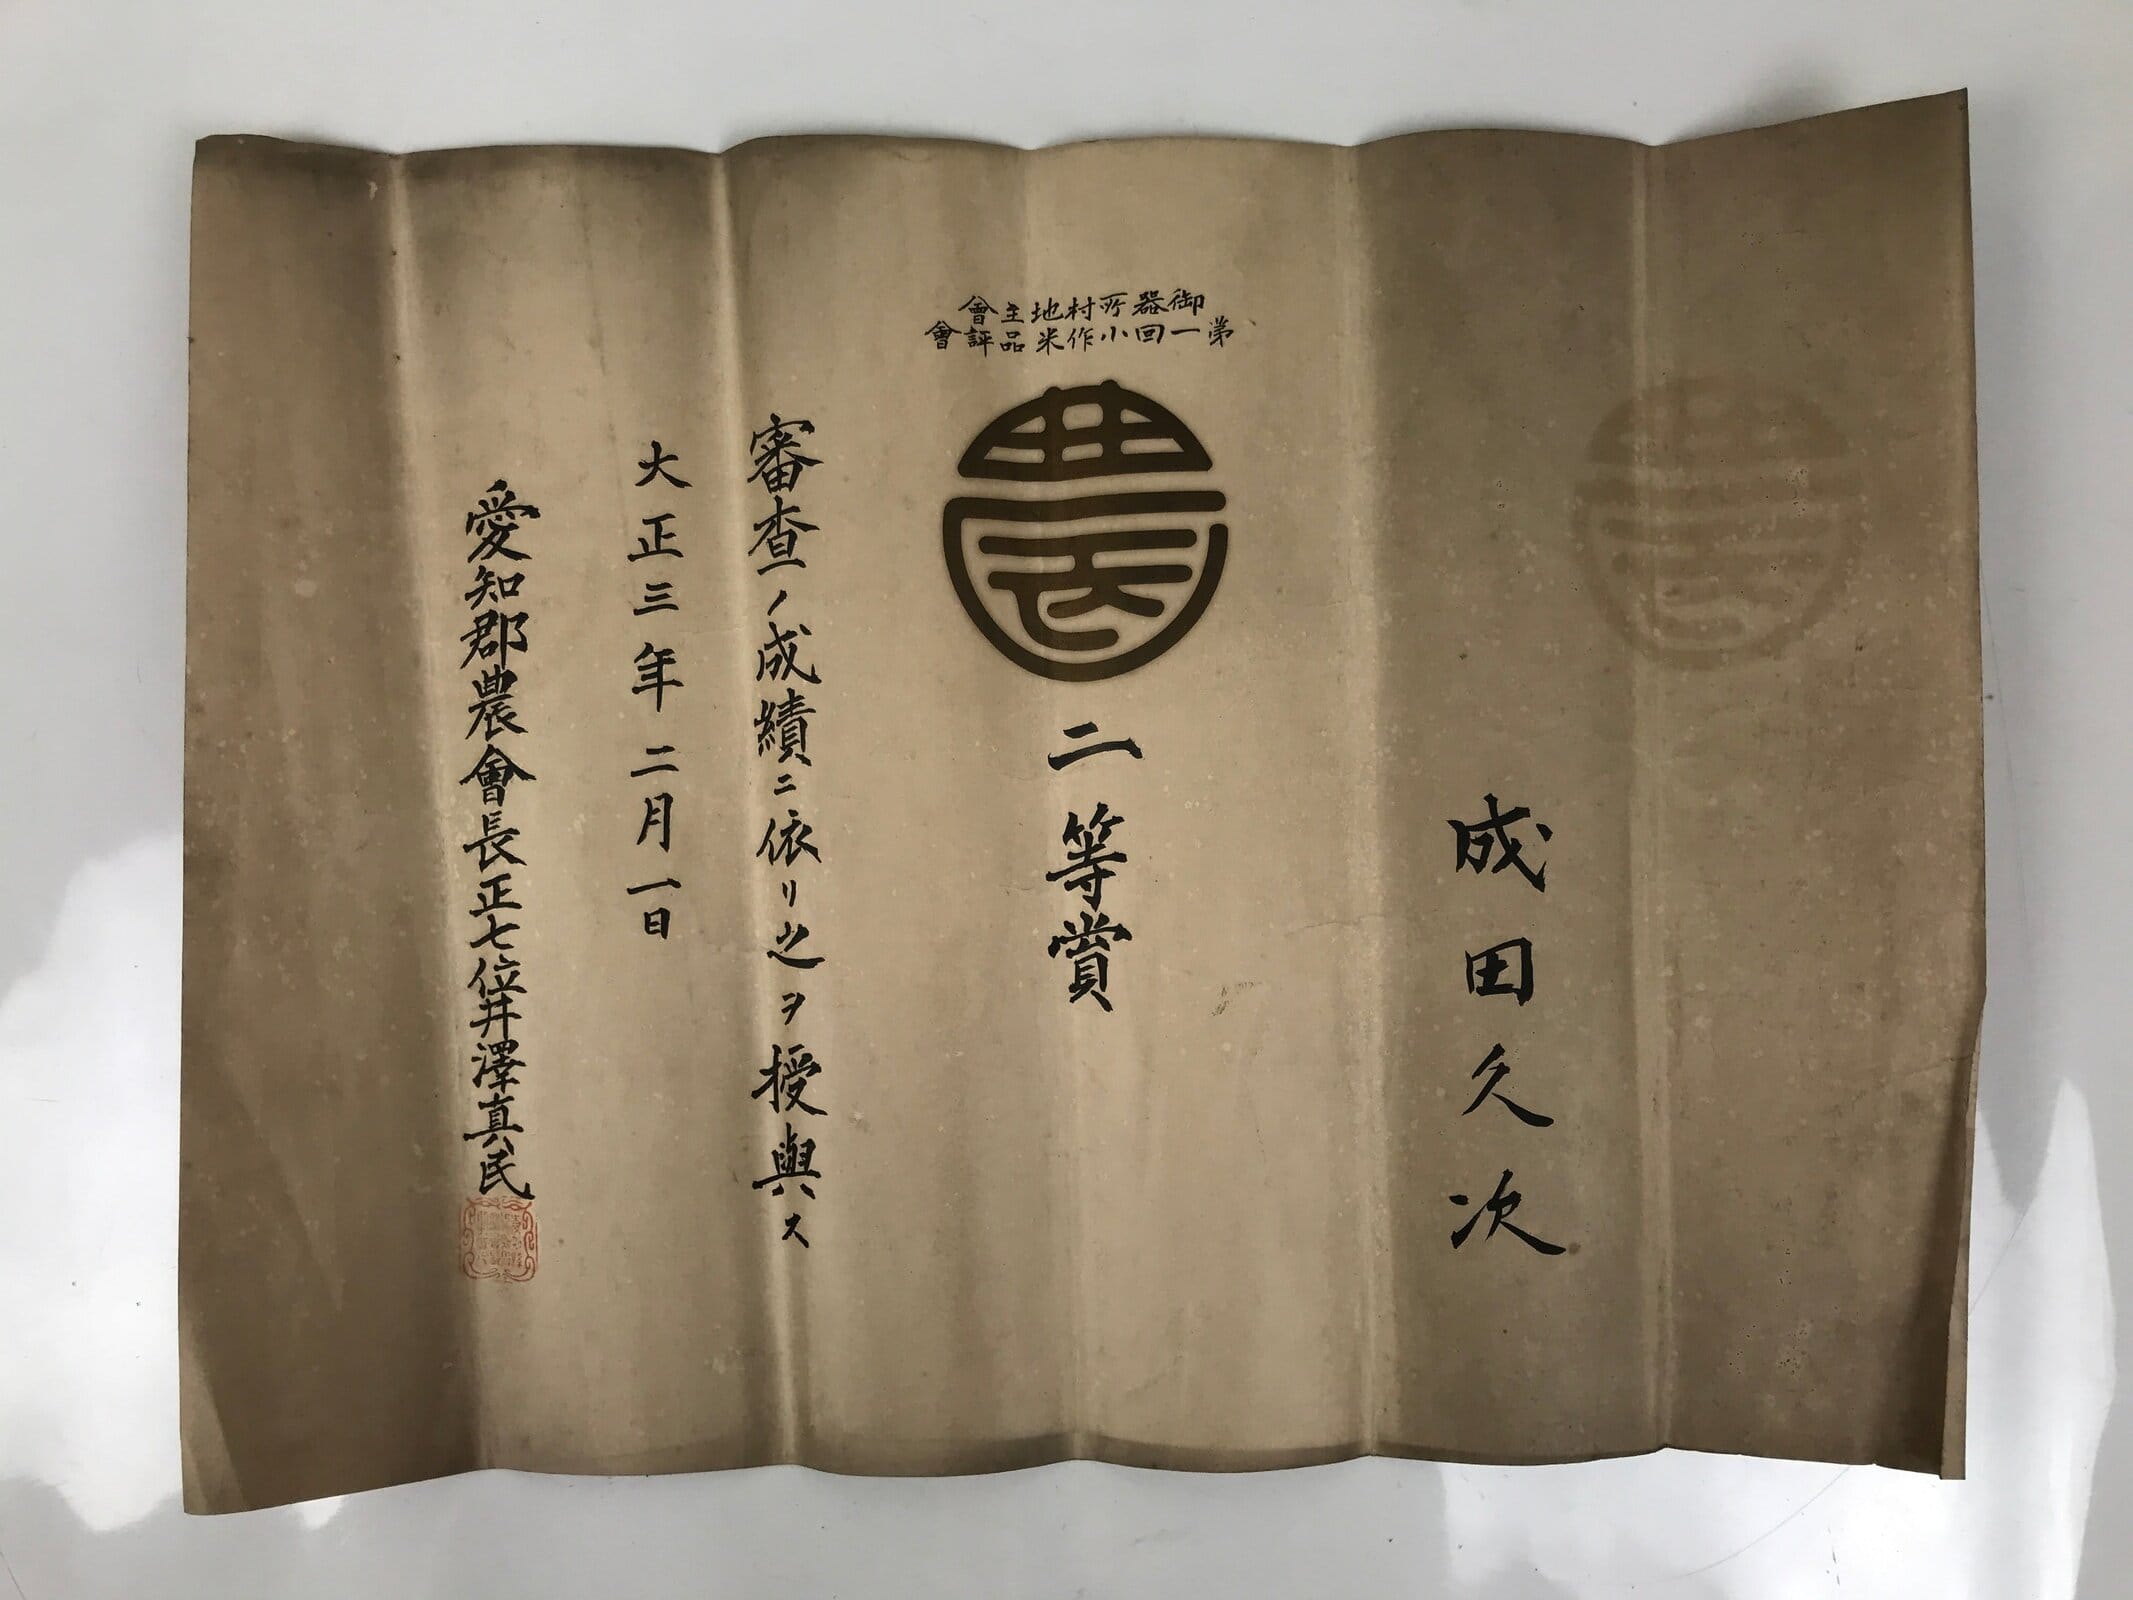 御器所村地主會
第一回小作米品評會
農
二等賞
成田久次
審査ノ成績ニ依リ之ヲ授與ス
大正三年二月一日
愛知郡農會長正七位井澤真民